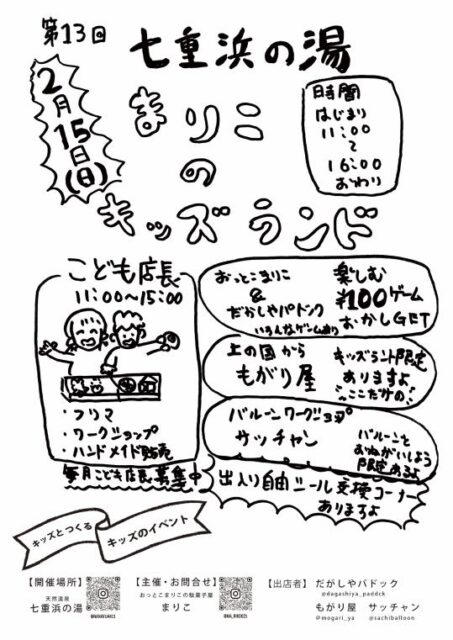 第13回
七重浜の湯
2月15日(日)
まりこ
の
キッズランド
時間
はじまり
11:00
〜
16:00
おわり
こども店長
11:00〜15:00
・フリマ
・ワークショップ
・ハンドメイド販売
毎月こども店長募集中
おっとこまりこ
&
だがしやパドック
いろんなゲームあり
楽しむ
¥100ゲーム
おかしGET
上の国から
もがり屋
キッズランド限定
ありますよ
ここだけの
バルーンワークショップ
サッチャン
バルーンと
おねがいしよう
限定あるよ
出入り自由シール交換コーナー
ありますよ
キッズとつくる
キッズのイベント
【開催場所】
天然温泉
七重浜の湯
【主催・お問合せ】
おっとこまりこの駄菓子屋
まりこ
【出店者】
だがしやパドック
@dagashiya_paddck
もがり屋
@mogari_ya
サッチャン
@sachiballoon